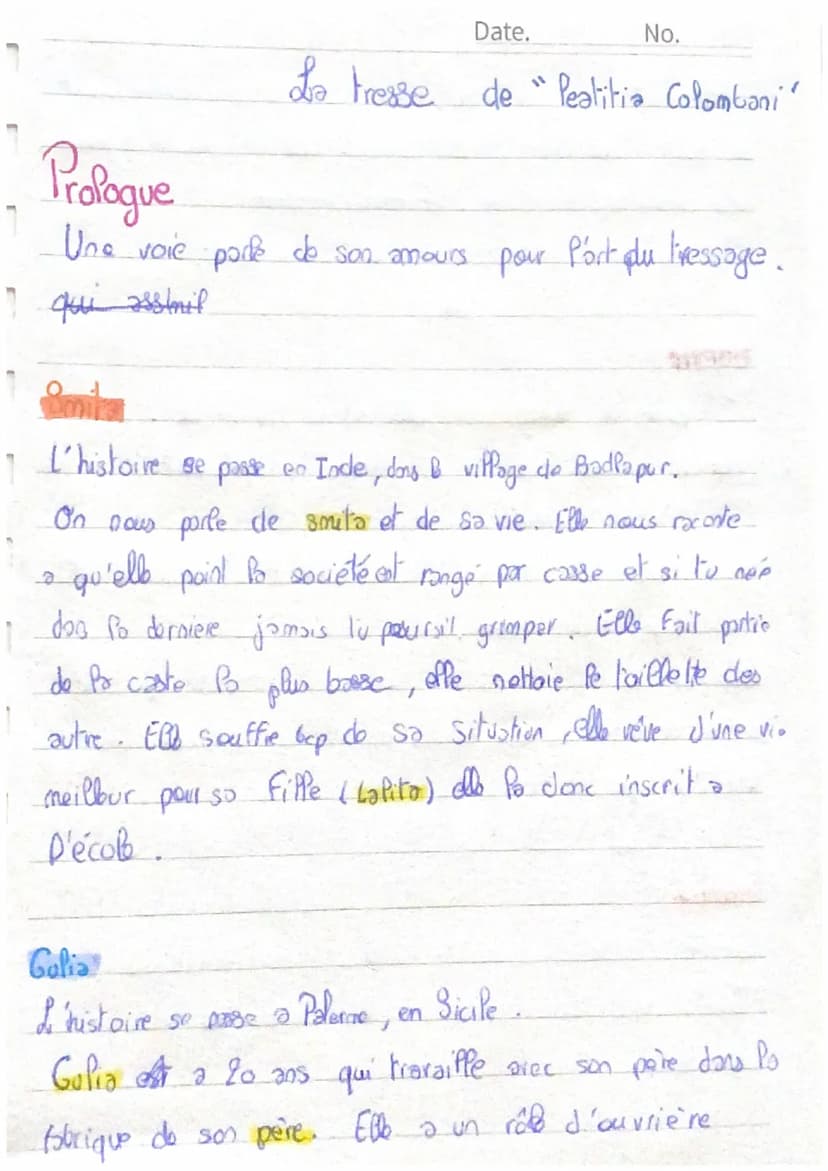 Date. No.
La tresse de "Leatitia Colombani"
Prologue
Une voie parle de son amours pour l'art du tressage.
qui
Smita
L'histoire se passe en Inde, dans le village de Badlapur.
On nous parle de smita et de sa vie. Elle nous raconte
a qu'elle point la société est rangé par casse et si tu née
dans la derniere jamais tu pourait grimper. Elle fait partie
de la caste la plus basse, elle nettoie le taillette des
autre. Elle souffre bcp de sa situation, elle rêve d'une vie
meilleur pour sa fille (Lalita) elle la donc inscrit a
l'école.
Gulia
L'histoire se passe a Palerme, en Sicile.
Gulia est a 20 ans qui travaille avec son père dans la
fabrique de son père. Elle a un rôle d'ouvrière